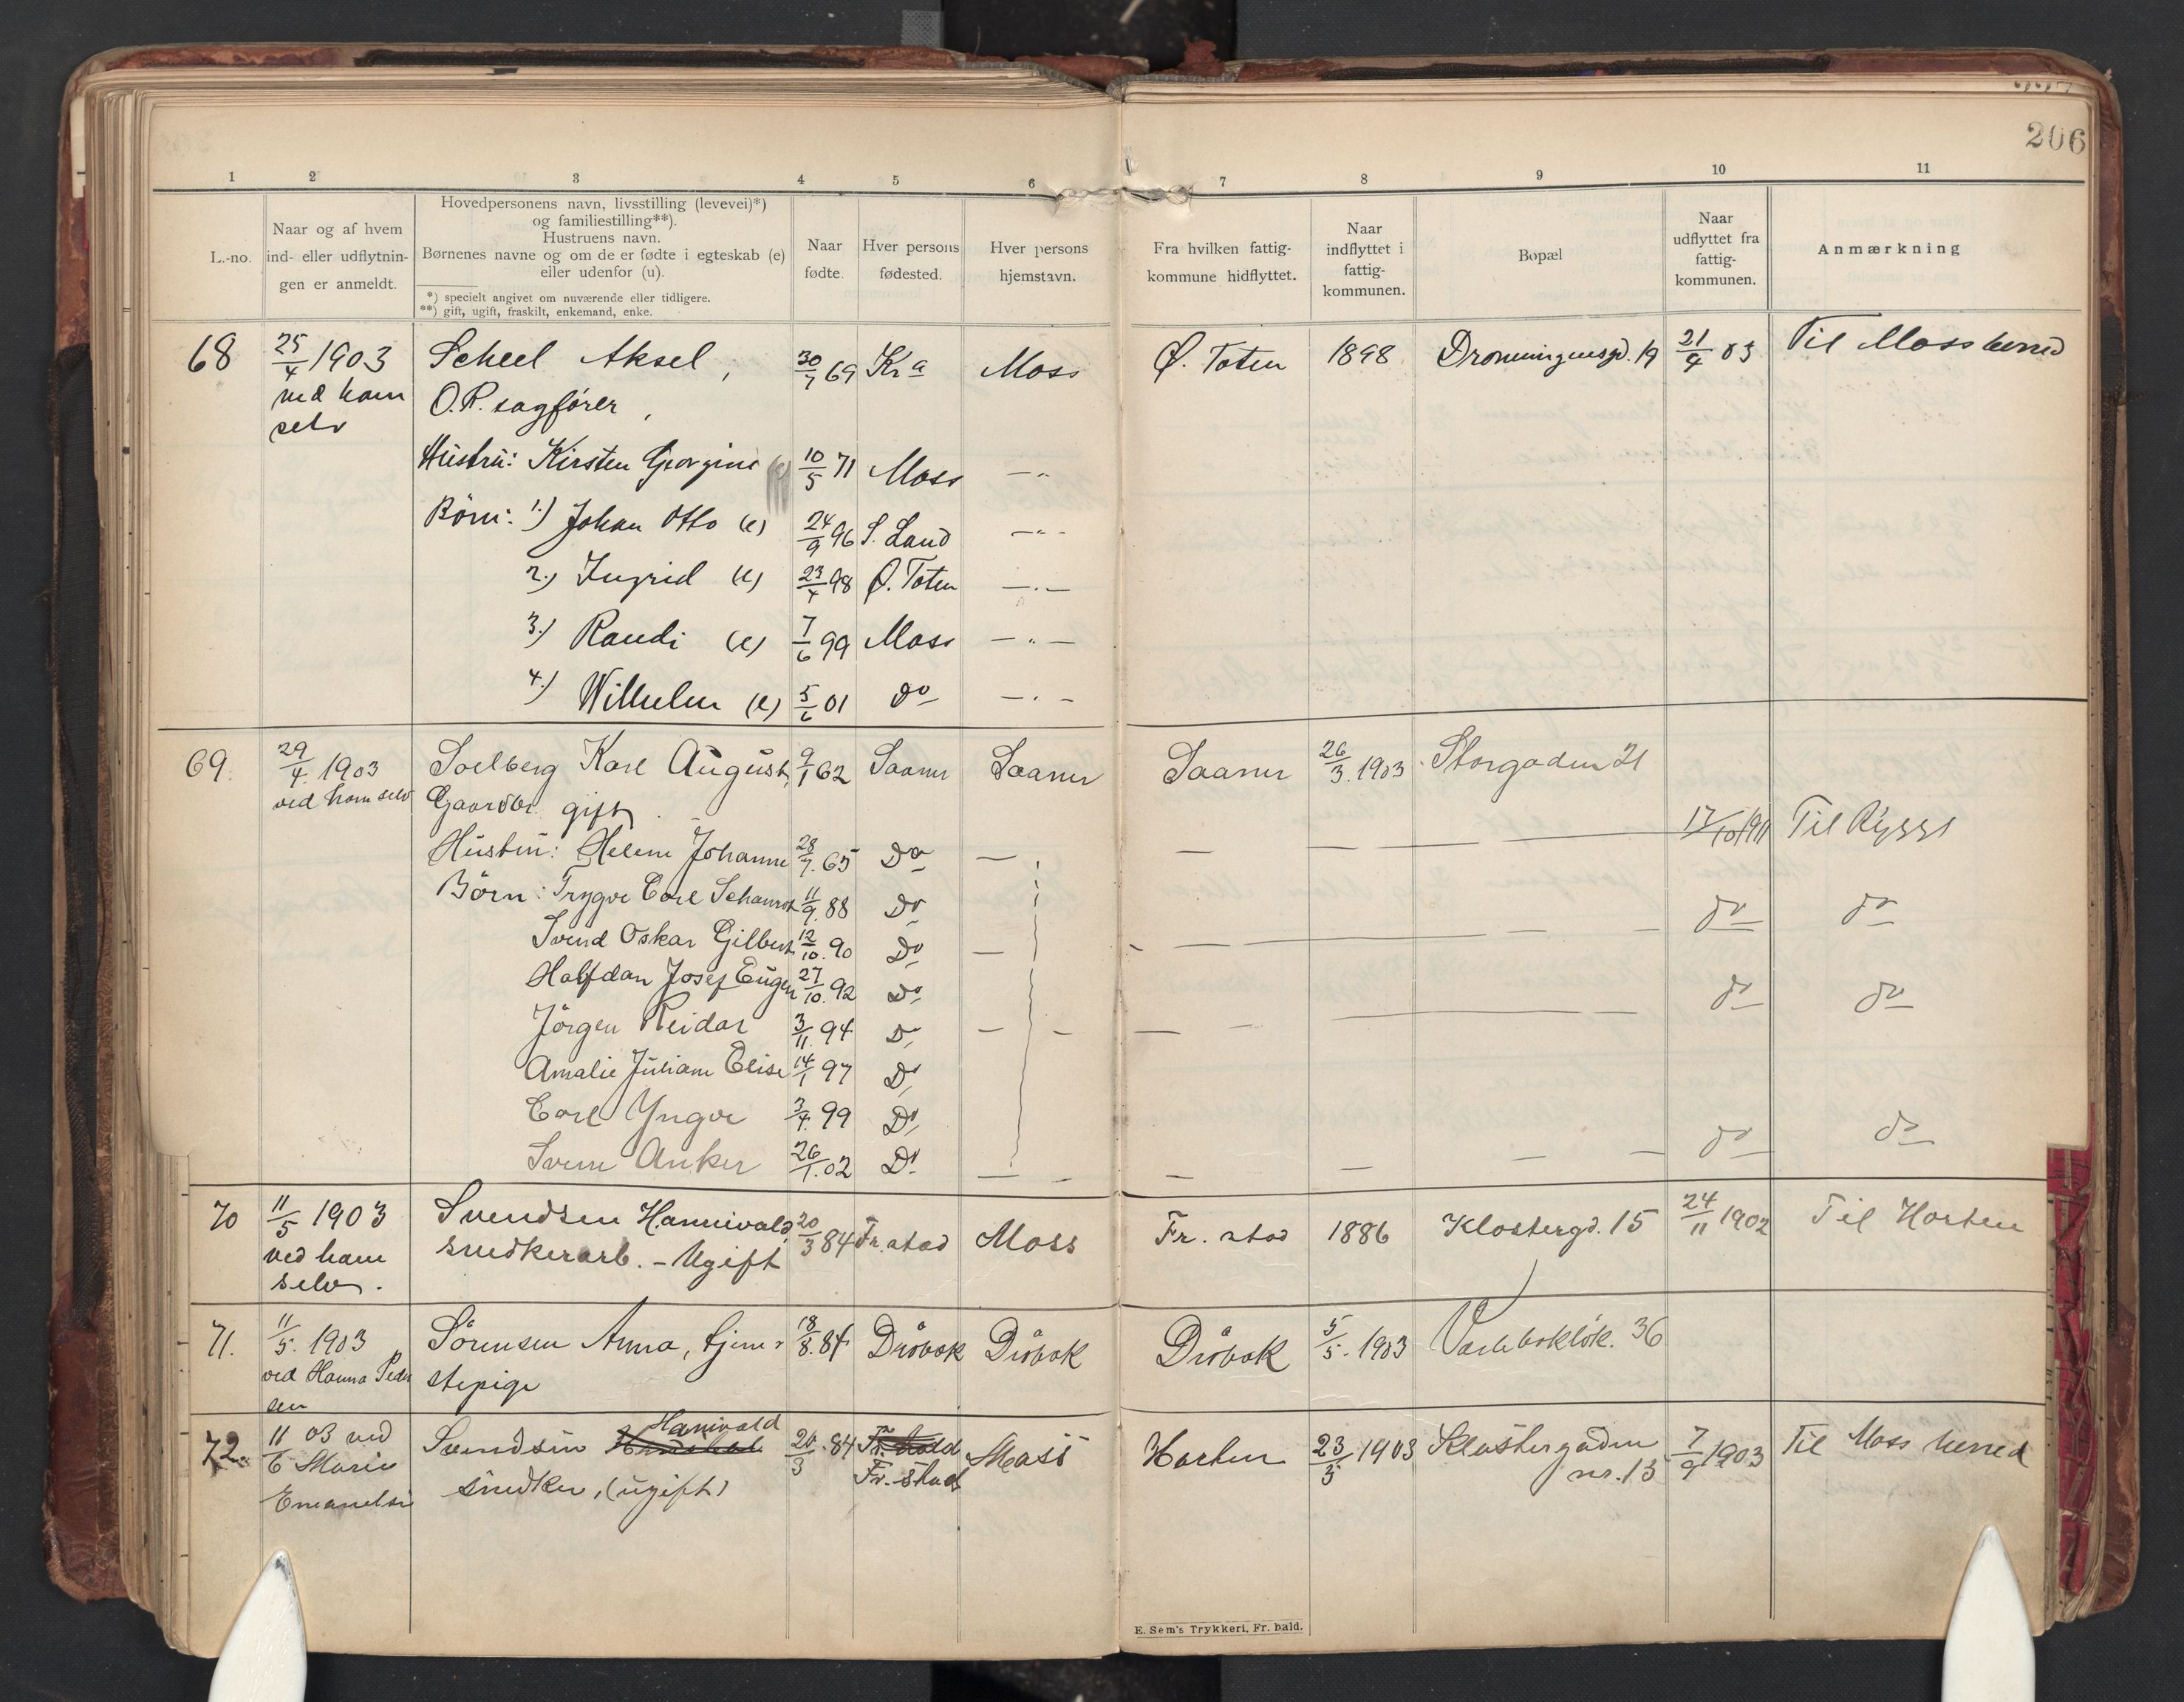 206
1 2 3 4 5 6 7 8 9 10 11
L.-no.
Naar og af hvem
ind- eller udflytnin-
gen er anmeldt.
Hovedpersonens navn, livsstilling (levevei)*)
og familiestilling**).
Hustruens navn.
Børnenes navne og om de er fødte i egteskab (e)
eller udenfor (u).
*) specielt angivet om nuværende eller tidligere.
**) gift, ugift, fraskilt, enkemand, enke.
Naar
fødte.
Hver persons
fødested.
Hver persons
hjemstavn.
Fra hvilken fattig-
kommune hidflyttet.
Naar
indflyttet i
fattig-
kommunen.
Bopæl
Naar
udflyttet fra
fattig-
kommunen.
Anmærkning
68 25/4 1903 Scheel Aksel, 30/7 69 Kra Moss Ø. Toten 1898 Dronningensgd. 19 21/9 03 Til Moss herred
ved ham O.R. sagfører,
selv
Hustru: Kirsten Georgine (e) 10/5 71 Moss — " —
Börn: 1.) Johan Otto (e) 24/9 96 S. Land — " —
2.) Ingrid (e) 23/4 98 Ø. Toten — " —
3.) Randi (e) 7/6 99 Moss — " —
4.) Wilhelm (e) 5/6 01 do — " —
69. 29/4. 1903 Soelberg Karl August, 9/1 62 Saaner Saaner Saaner 26/3. 1903 Storgaden 21
ved ham selv Gaardbr. gift. 17/10 1911 Til Rygge
Hustru: Helene Johanne 28/7. 65 Do
Börn: Trygve Carl 11/9. 88 Do do do
Svend Oskar Gilbert 12/10. 90 Do
Halfdan Josef Eugen 27/10. 92 Do do do
Jörgen Reidar 3/11. 94 Do
Amalie Juliane Elise 14/1 97 Do
Carl Yngve 3/4. 99 Do
Svere Anker 26/1. 02 Do do do
70 11/5 1903 Svendsen Hannivald, 20/3 84 Fr. stad Moss Fr. stad 1886 Klostergd. 15 24/11 1902 Til Horten
ved ham snedkerarb. - Ugift
selv.
71. 11/5. 1903 Sörensen Anna, tjene- 18/8. 84 Dröbak Dröbak Dröbak 5/5. 1903 36
ved Hanna Peder stepige
sen
72. 11/6 03 ved Svendsen Hanivald 20/3. 84 Fr. hald Moss Horten 23/5 1903 Klostergaden 7/9 1903 Til Moss herred
Marie snedker, (ugift) Fr. stad nr. 15
Emanelsen
E. Sem's Trykkeri, Fr. hald.